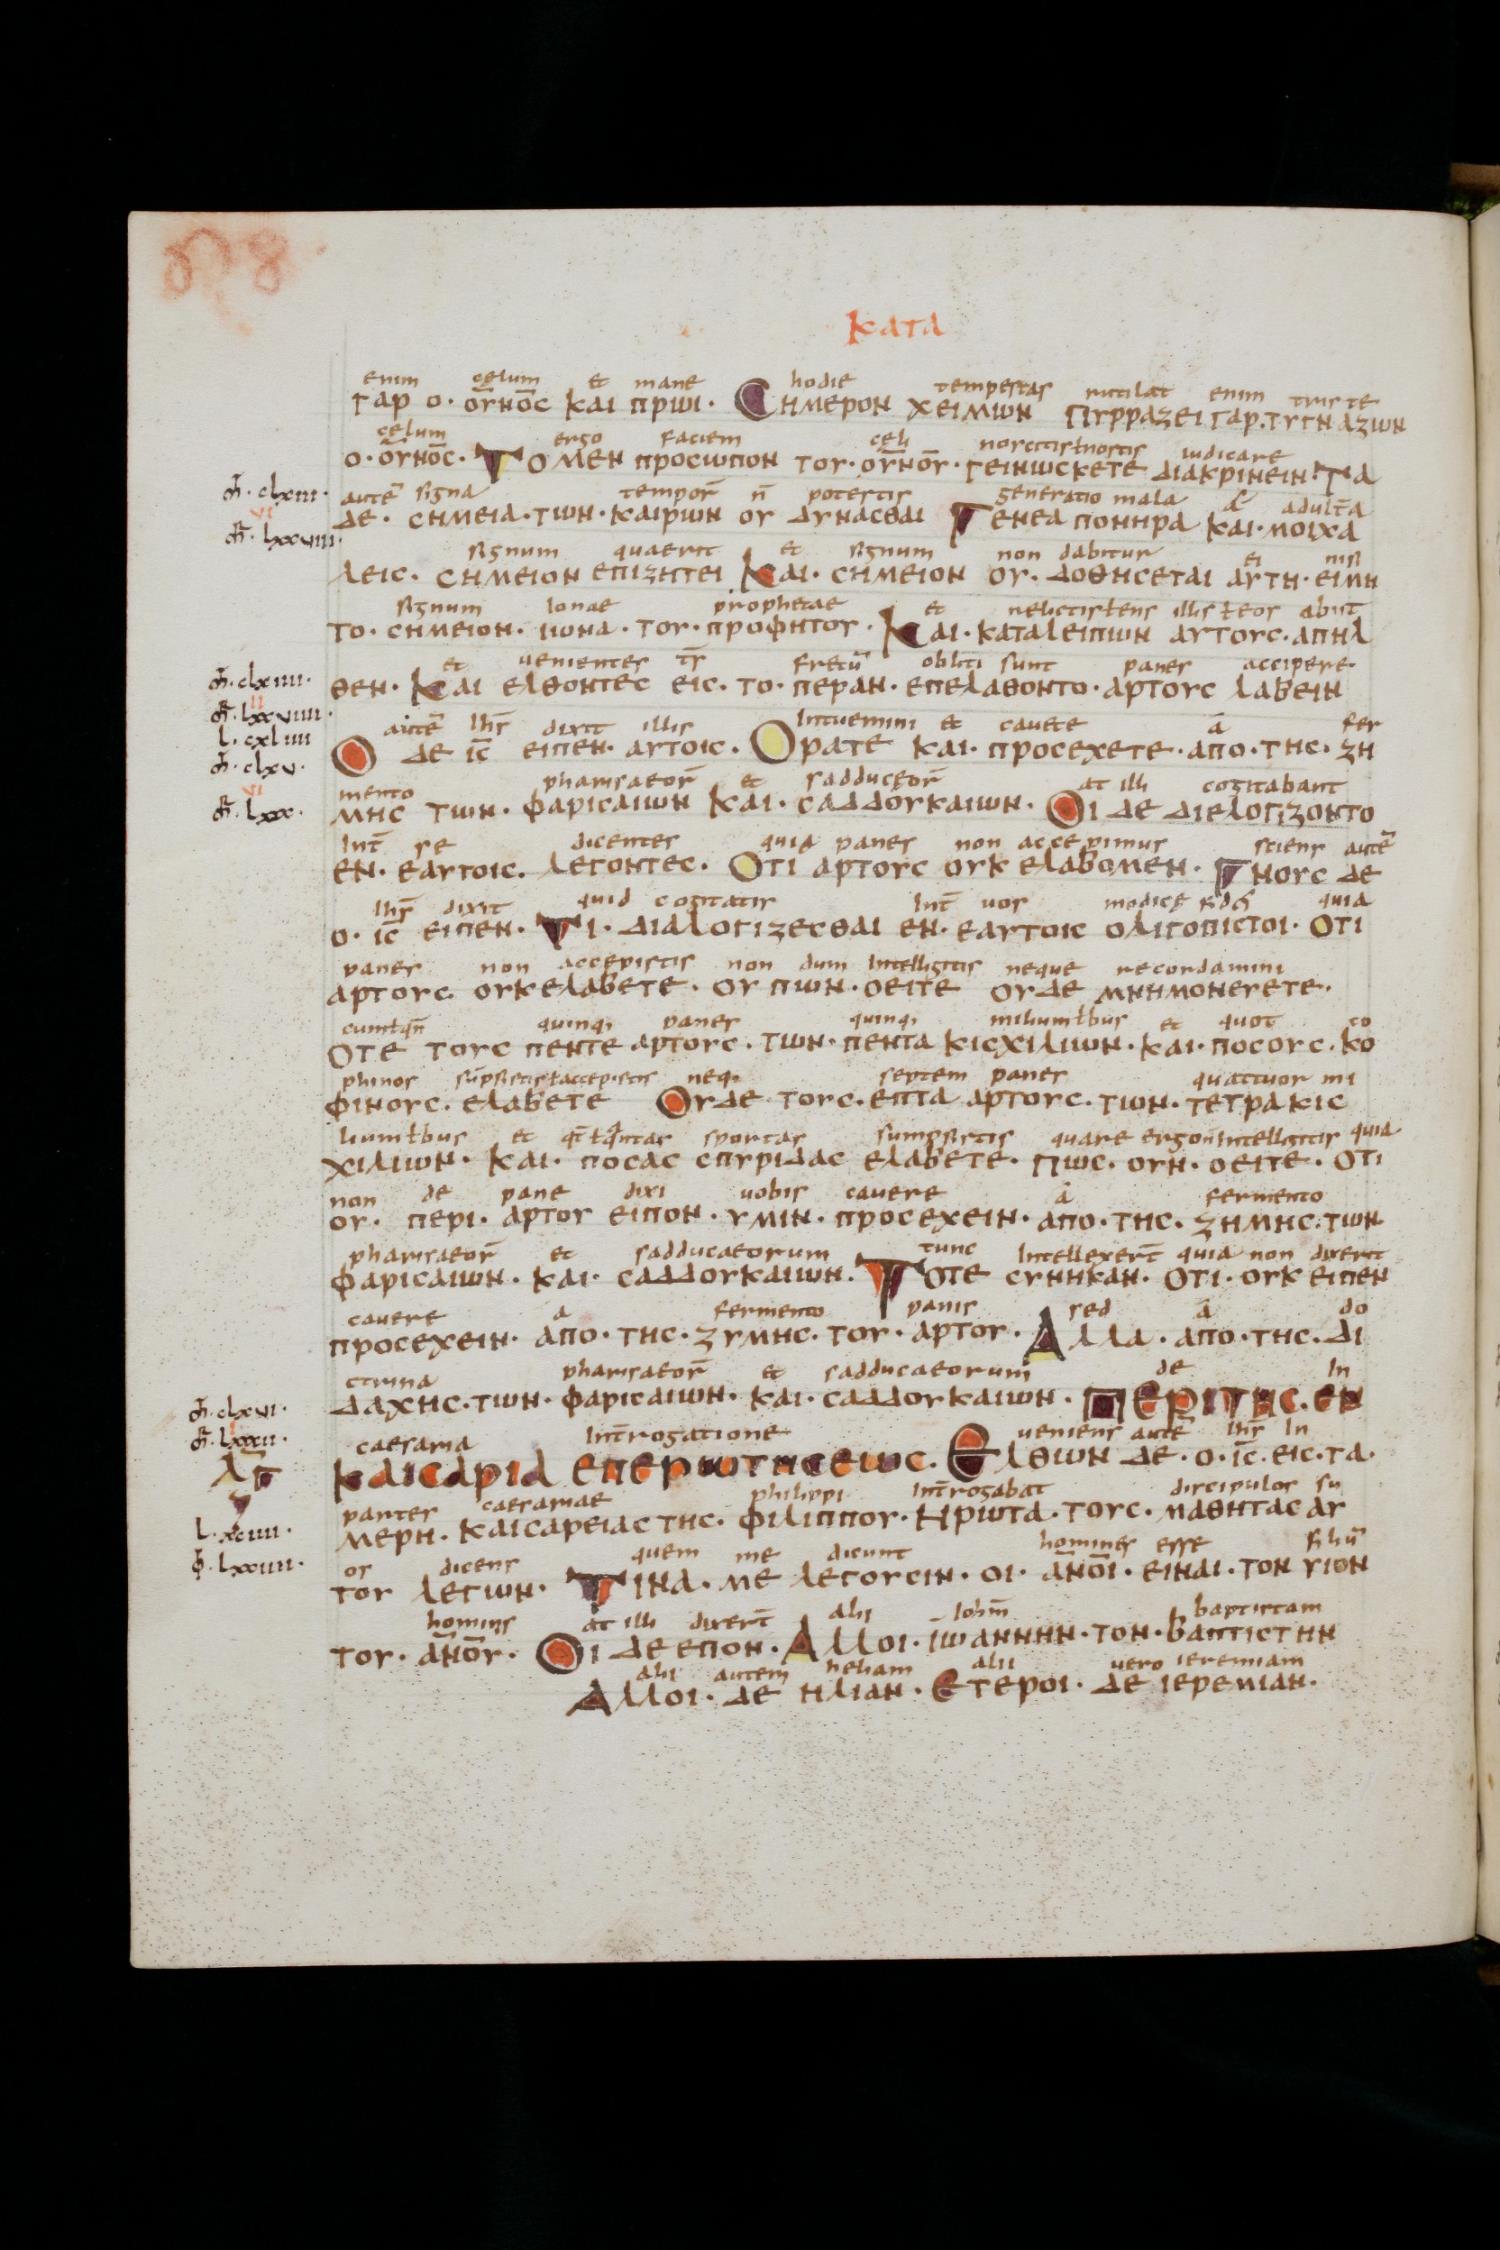 κατα
enim cęlum et mane hodie tempestas rutilat enim triste
γαρ ο· ουνοс και πρωι· Сημερον χειμων Πυρραζει γαρ· τυγναζων
cęlum ergo faciem cęli iudicare
ο· ουνοс· Το μεν προсωπον του· ουνου· γεινωсκετε διακρινειν· Τα
autē signa tempoꝝ n̄ potestis generatio mala & adult̄a
m̄· clxiii·
δε· сημεια· των· καιρων ου δυναсθαι Γενεα πονηρα και· μοιχα
vi
m̄ꝛ· lxxviii·
signum quaerit et signum non dabitur ei nisi
λειс· сημειον επιζητει Και· сημειον ου· δοθηсεται αυτη· ειμη
signum ionae prophetae et abiit
το· сημειον· ιωνα· του· προφητου· Και· καταλειπων αυτουс· απηλ
et uenientes tr̄ fretū obliti sunt panes accipere·
m̄· clxiiii·
θεν· Και ελθοντεс ειс· το· περαν· επελαθοντο· αρτουс λαβειν
m̄ꝛ· lxxviiii·
l· cxliiii
autē ihs̄ dixit illis Intuemini et cauete ā fer
m̄· clxv·
Ο δε ιс ειπεν· αυτοιс· Ορατε και· προсεχετε· απο· τηс· ζη
vi
mento pharisaeoꝝ et sadducęoꝝ at illi cogitabant
m̄ꝛ· lxxx·
μηс των· φαριсαιων και· сαδδουκαιων· Οι δε διελογιζοντο
Int̄ se dicentes quia panes non accepimus sciens autē
εν· εαυτοιс· λεγοντεс· Οτι αρτουс ουκ ελαβομεν· Γνουс δε
ihs̄ dixit quid cogitatis Int̄ uos modicę quia
ο· ιс ειπεν· Τι· διαλογιζεсθαι εν· εαυτοιс ολιγοπιсτοι· Οτι
panes non accepistis non dum Intelligitis neque recordamini
αρτουс ουκελαβετε· ου πων· οειτε ουδε μνημονευετε·
quinq; panes quinq; et quot co
οτε τουс πεντε αρτουс· των· πεντα κιсχιλιων· και· ποсουс· κο
phinos neq; septem panes quattuor mi
φινουс· ελαβετε Ουδε τουс· επτα αρτουс· των· τετρα κιс
et sportas sumpsistis quare ergo n̄ Intelligitis quia
χιλιων· και· ποсαс сπυριδαс ελαβετε· Πωс· ουν· οειτε· οτι
non de pane dixi uobis cauere ā fermento
ου· περι· αρτου ειπον· υμιν· προсεχειν· απο· τηс· ζημηс· των
pharisaeoꝝ et sadducaeorum tunc Intellexer̄t quia non dixerit
φαριсαιων· και· сαδδουκαιων· Τοτε сυνηκαν· οτι· ουκ ειπεν
cauere a fermento panis sed ā do
προсεχειν· απο· τηс· ζυμηс· του· αρτου· Αλλα· απο· τηс· δι
ctrina pharisaeoꝝ et sadducaeorum de In
δαχηс· των· φαριсαιων· και· сαδδουκαιων· περι τηс· εν
m̄· clxvi·
m̄ꝛ· lxxxii·
caesaria Int̄rogatione ueniens autē ihs̄ In
καιсαρια επερωτηсεωс· Ελθων δε· ο· ιс· ειс· τα·
λγ
partes caesariae philippi Int̄rogabat discipulos su
l· xciiii·
μερη· καιсαρειαс τηс· φιλιππου· Ηρωτα· τουс· μαθηταс αυ
os dicens quem me dicunt homines esse filiū
lxxiiii·
του λεγων· Τινα· με λεγουсιν· οι· ανοι· ειναι· τον υιον
hominis at illi dixer̄t alii Ioh̄m baptistam
του· ανου· Οι δε επον· Αλλοι· ιωαννην· τον· βαπτιсτην
alii autem heliam alii uero ieremiam
Αλλοι· δε ηλιαν· Ετεροι· δε ιερεμιαν·